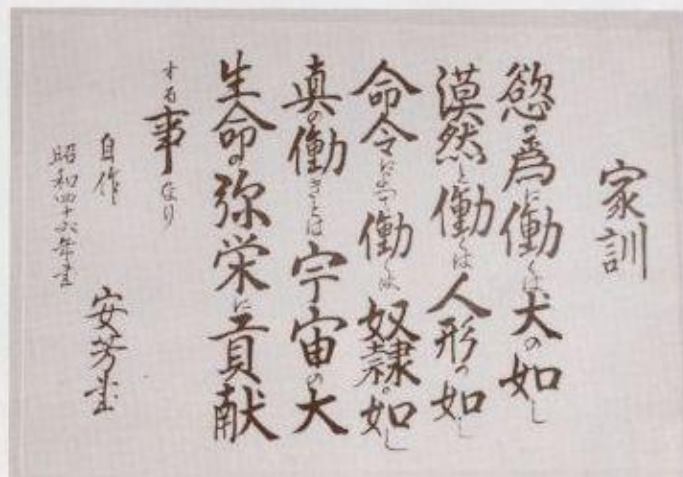 家訓
慾の為に働くは犬の如し
漠然と働くは人形の如し
命令に出で働くは奴隷の如し
真の働きとは宇宙の大
生命の弥栄に貢献
する事なり
自作
昭和四十六年書
安芳書